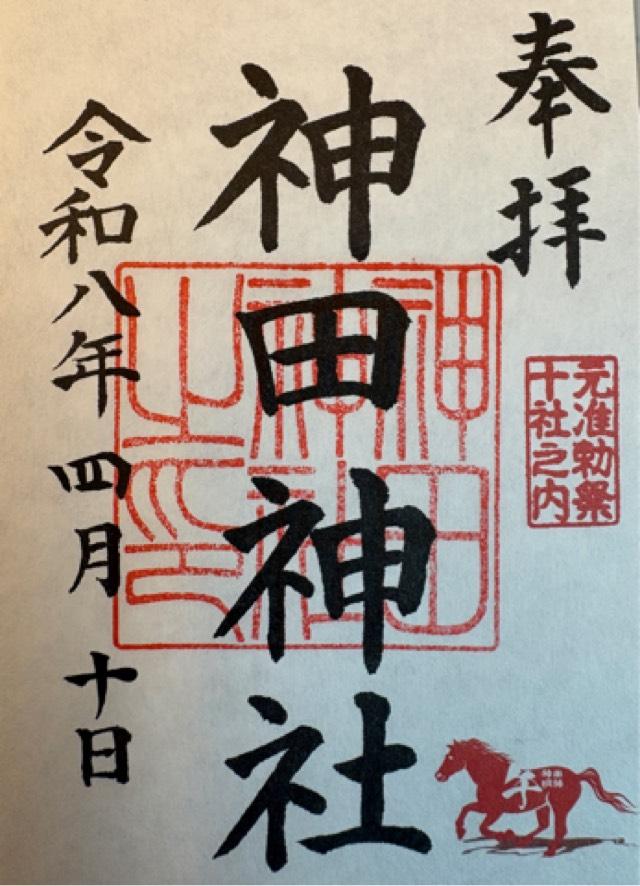 奉拝
元准勅祭
十社之内
神田神社
神田神社之印
令和八年 四月 十日